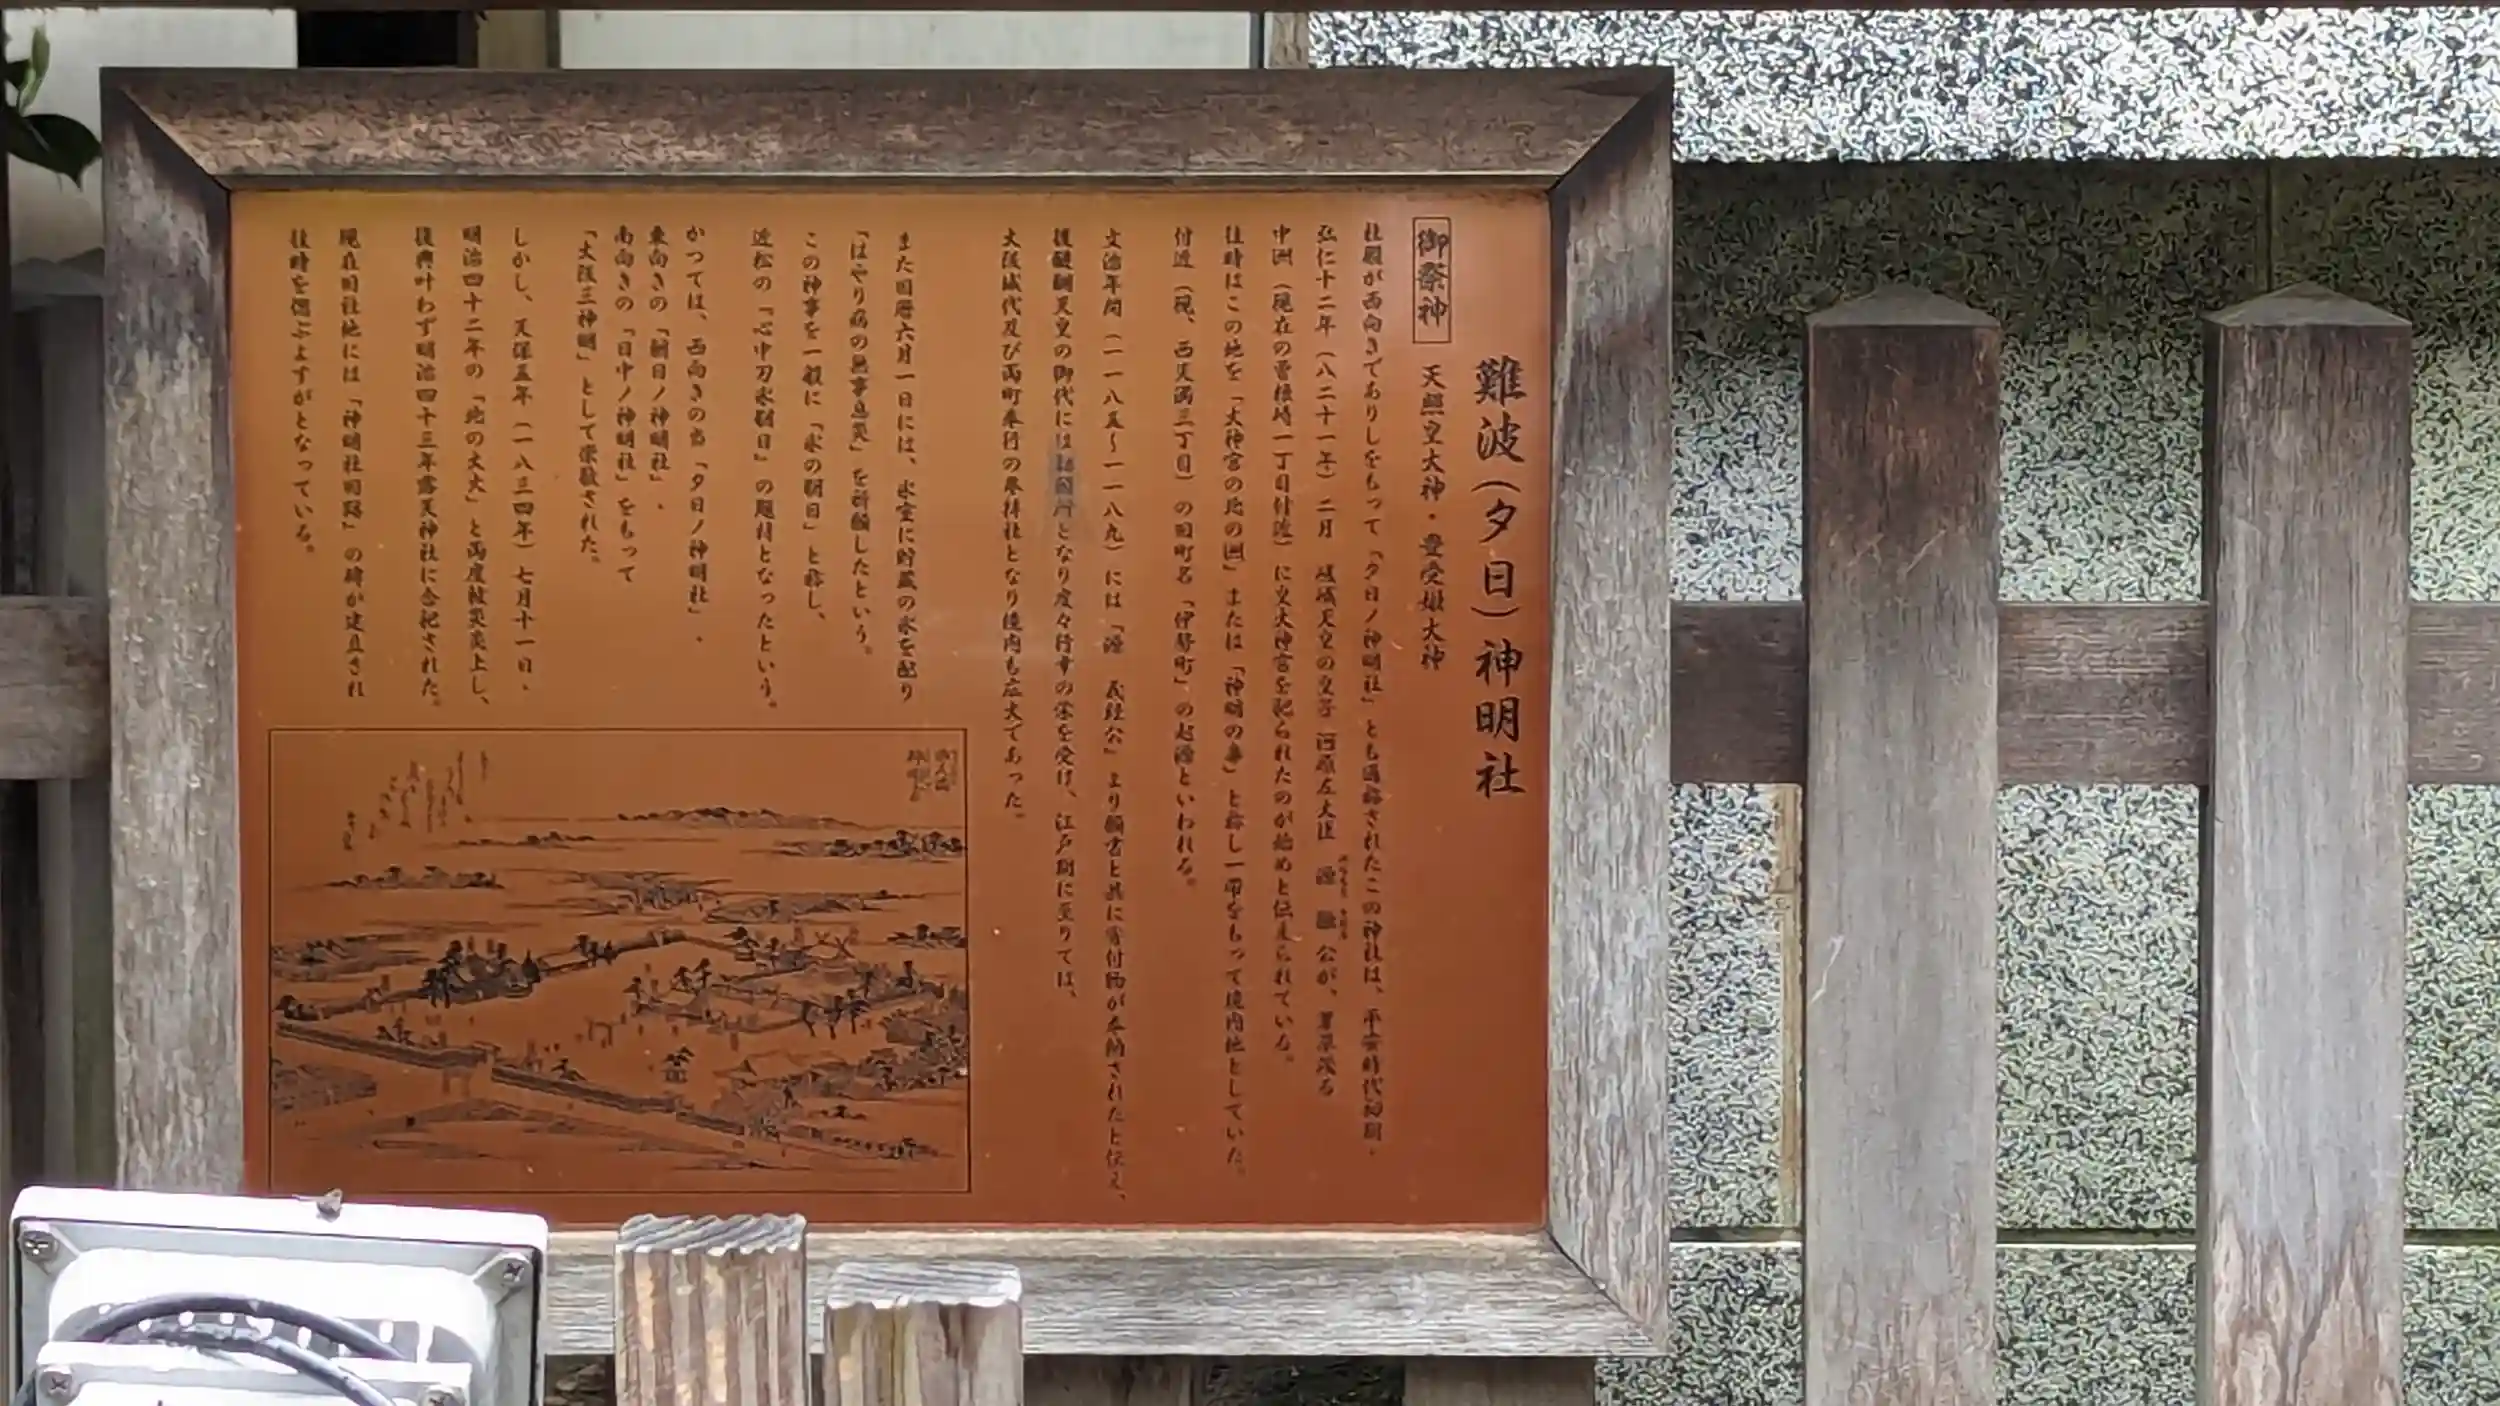 難波(夕日)神明社
御祭神 天照皇大神・豊受媛大神
社殿が西向きでありしをもって「夕日ノ神明社」とも通称されたこの神社は、平安時代初期、
弘仁十二年(八二十一年)二月 嵯峨天皇の皇子 河原左大臣 源 融 公が、葦草茂る
中洲(現在の曽根崎一丁目付近)に皇大神宮を祀られたのが始めと伝えられている。
往時はこの地を「大神宮の北の洲」または「神明の鼻」と称し一帯をもって境内地としていた。
付近(現、西天満三丁目)の旧町名「伊勢町」の起源といわれる。
文治年間(一一八五〜一一八九)には「源 義経公」より願書と共に寄付物が奉納されたと伝え、
後醍醐天皇の御代には勅願所となり度々行幸の栄を受け、江戸期に至りては、
大阪城代及び両町奉行の奉持社となり境内も広大であった。
また旧暦六月一日には、氷室に貯蔵の氷を配り
「はやり病の無事息災」を祈願したという。
この神事を一般に「氷の朔日」と称し、
近松の「心中刃氷朔日」の題材となったという。
かつては、西向きの当「夕日ノ神明社」、
東向きの「朝日ノ神明社」、
南向きの「日中ノ神明社」をもって
「大阪三神明」として崇敬された。
しかし、天保五年(一八三四年)七月十一日、
明治四十二年の「北の大火」と両度被災炎上し、
復興叶わず明治四十三年露天神社に合祀された。
現在旧社地には「神明社旧跡」の碑が建立され
往時を偲ぶよすがとなっている。